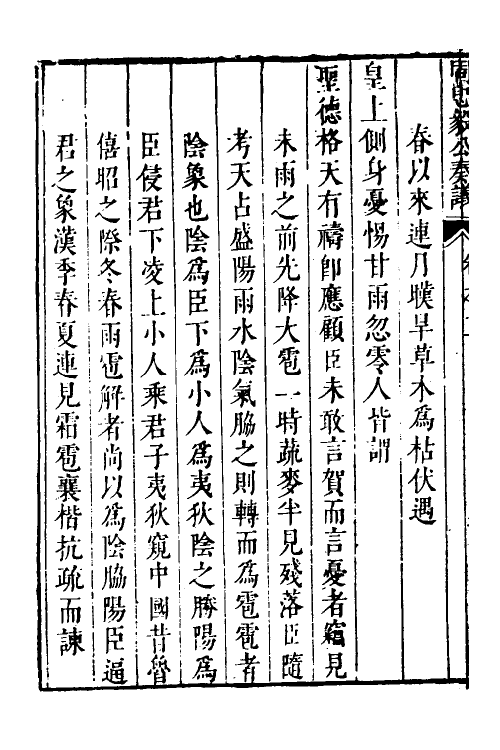 周忠毅公奏議
春以來連月暵旱草木爲枯伏遇
皇上側身憂惕甘雨忽零人皆謂
聖德格天有禱卽應顧臣未敢言賀而言憂者竊見
未雨之前先降大雹一時蔬麥半見殘落臣隨
考天占盛陽雨水陰氣脇之則轉而爲雹雹者
陰象也陰爲臣下爲小人爲夷狄陰之勝陽爲
臣侵君下凌上小人乘君子夷狄窺中國昔魯
僖昭之際冬春雨雹解者尚以爲陰脇陽臣逼
君之象漢季春夏連見霜雹襄楷抗疏而諫